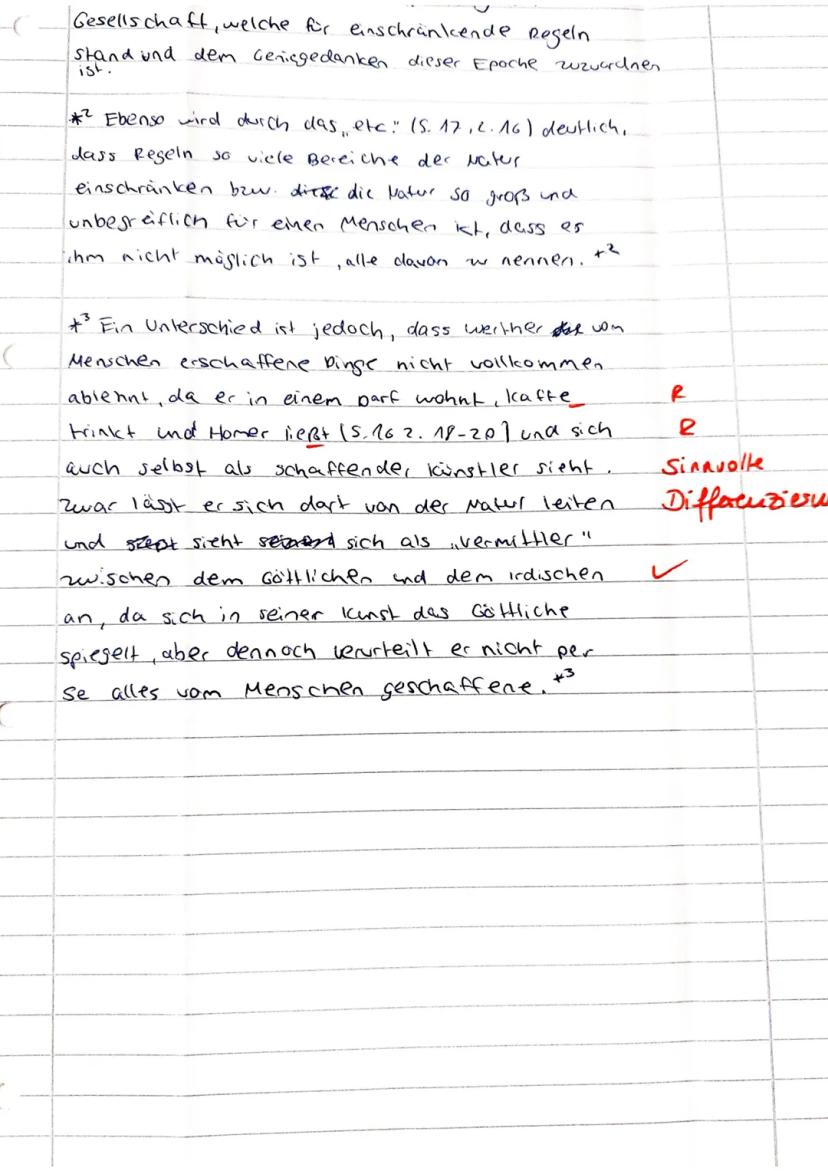 Gesellschaft, welche für einschränkende Regeln
stand und dem Geniegedanken dieser Epoche zuzuordnen
ist.
*² Ebenso wird durch das „etc." (S. 17, Z. 16) deutlich,
dass Regeln so viele Bereiche der Natur
einschränken bzw. die Natur so groß und
unbegreiflich für einen Menschen ist, dass es
ihm nicht möglich ist, alle davon zu nennen. *²
*³ Ein Unterschied ist jedoch, dass Werther vom
Menschen erschaffene Dinge nicht vollkommen
ablehnt, da er in einem Dorf wohnt, Kaffe R
trinkt und Homer ließt (S. 16 Z. 18-20) und sich R
auch selbst als schaffender Künstler sieht. Sinnvolle
Zwar lässt er sich dort von der Natur leiten Differenzieru
und sieht sich als „Vermittler"
zwischen dem Göttlichen und dem irdischen ✓
an, da sich in seiner Kunst das Göttliche
spiegelt, aber dennoch verurteilt er nicht per
se alles vom Menschen geschaffene. *³